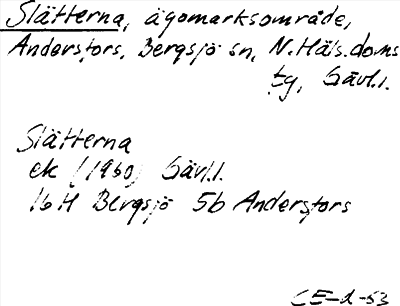 Slätterna, ägomarksområde,
Andersfors, Bergsjö sn, N.Häls.doms
tg, Gävl.l.
Slätterna
ek (1960) Gävl.l.
16H Bergsjö 5b Andersfors
CE-d-53